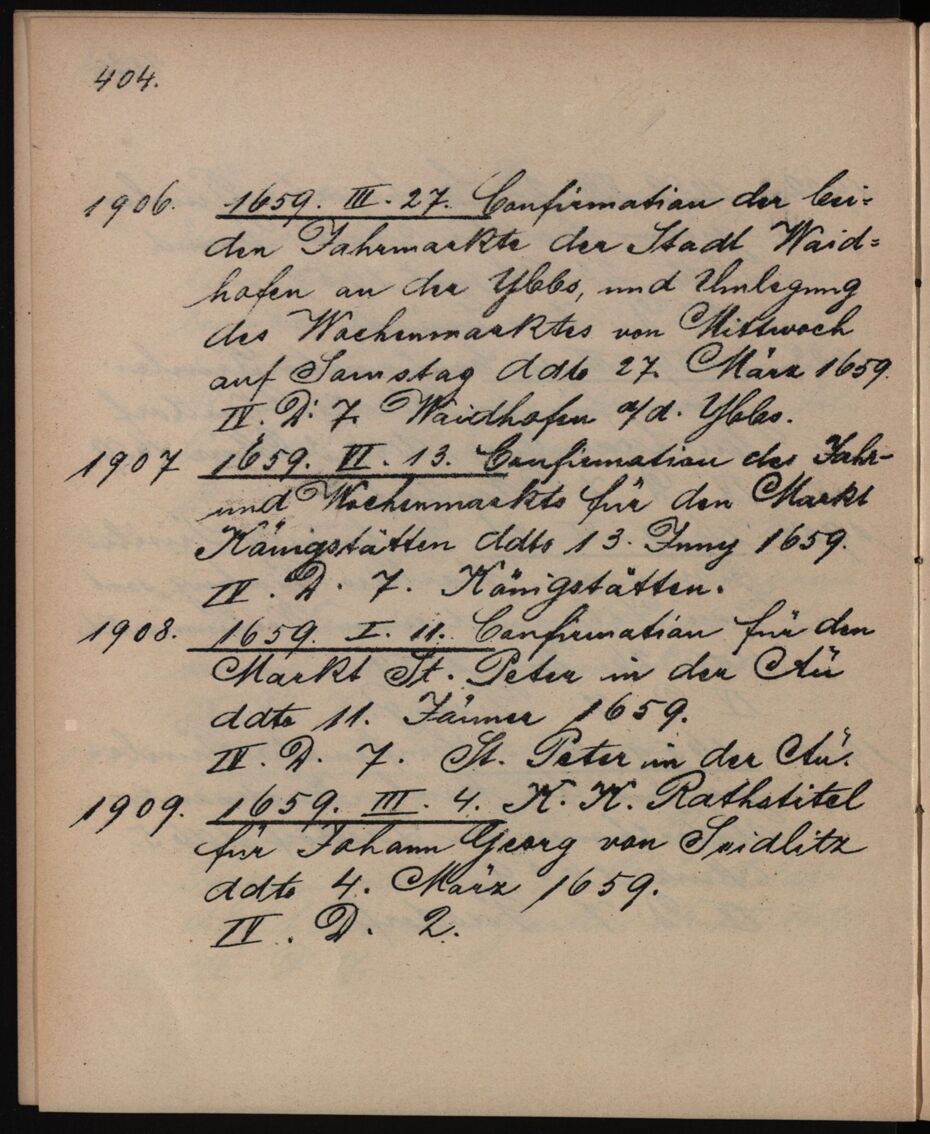 404.
1906. 1659. III. 27. Confirmation der bei=
den Jahrmarkte der Stadt Waid=
hofen an der Ybbs, und Umlegung
des Wochenmarktes von Mittwoch
auf Samstag ddto 27. März 1659.
IV. D. 7. Waidhofen a/d. Ybbs.
1907 1659. VI. 13. Confirmation des Jahr-
und Wochenmarkts für den Markt
Königstätten ddto 13. Juny 1659.
IV. D. 7. Königstätten.
1908. 1659. I. 11. Confirmation für den
Markt St. Peter in der Aü
ddto 11. Jänner 1659.
IV. D. 7. St. Peter in der Aü.
1909. 1659. III. 4. K. K. Rathstitel
für Johann Georg von Seidlitz
ddto 4. März 1659.
IV. D. 2.